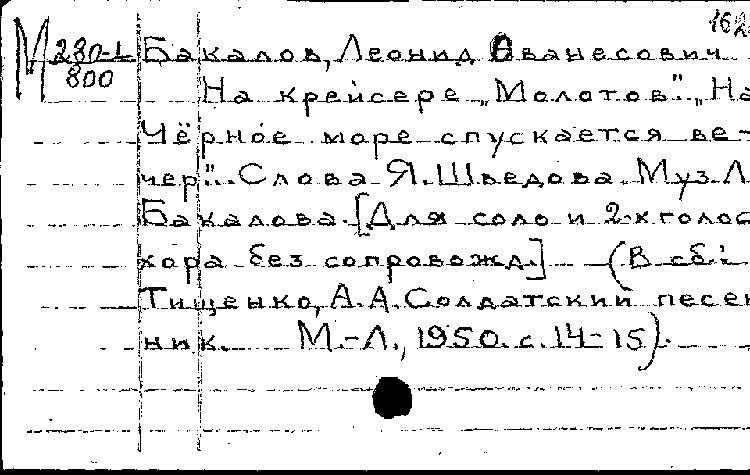 162
М 280-1/800 Бакалов, Леонид Ованесович
На крейсере „Молотов". „На
Чёрное море спускается ве-
чер". Слова Я. Шведова. Муз. Л.
Бакалова. [Для соло и 2-х голос
хора без сопровожд.] (В сб.:
Тищенко, А.А. Солдатский песен
ник. М.-Л., 1950. с. 14-15).